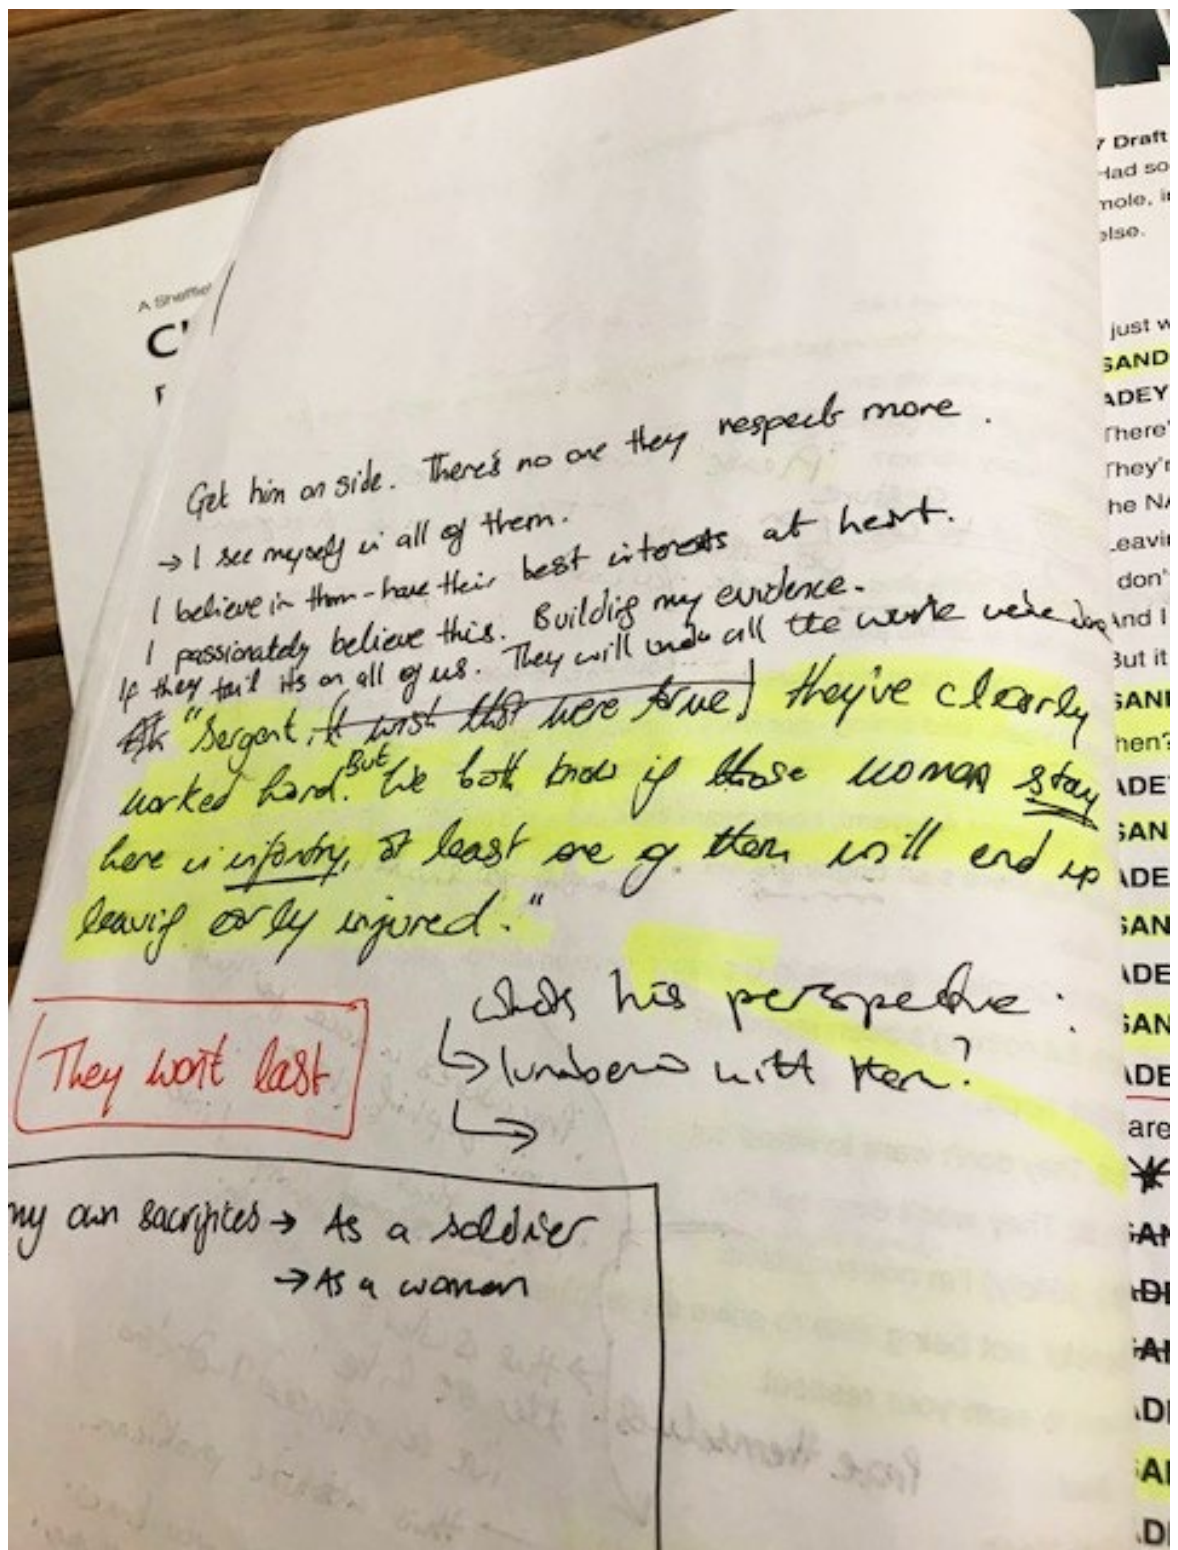 A Sheffiel
Get him on side. There's no one they respect more.
→ I see myself in all of them.
I believe in them - have their best interests at heart.
I passionately believe this. Building my evidence.
If they fail its on all of us. They will undo all the work we're
"Sergent, it wish that were true] they've clearly
worked hard. But We both know if those women stay
here in infantry, at least one of them will end up
leaving early injured."
They won't last
whats his perspective:
↳ with them?
↳
my own sacrifices → As a soldier
→ As a woman
7 Draft
Had so
mole, i
else.
just w
SAND
ADEY
There'
They'r
he NA
Leavi
don'
And I
But it
SAN
hen?
ADE
SAN
ADE
SAN
ADE
SAN
ADE
are
SAN
ADE
SAN
ADE
SAN
ADE